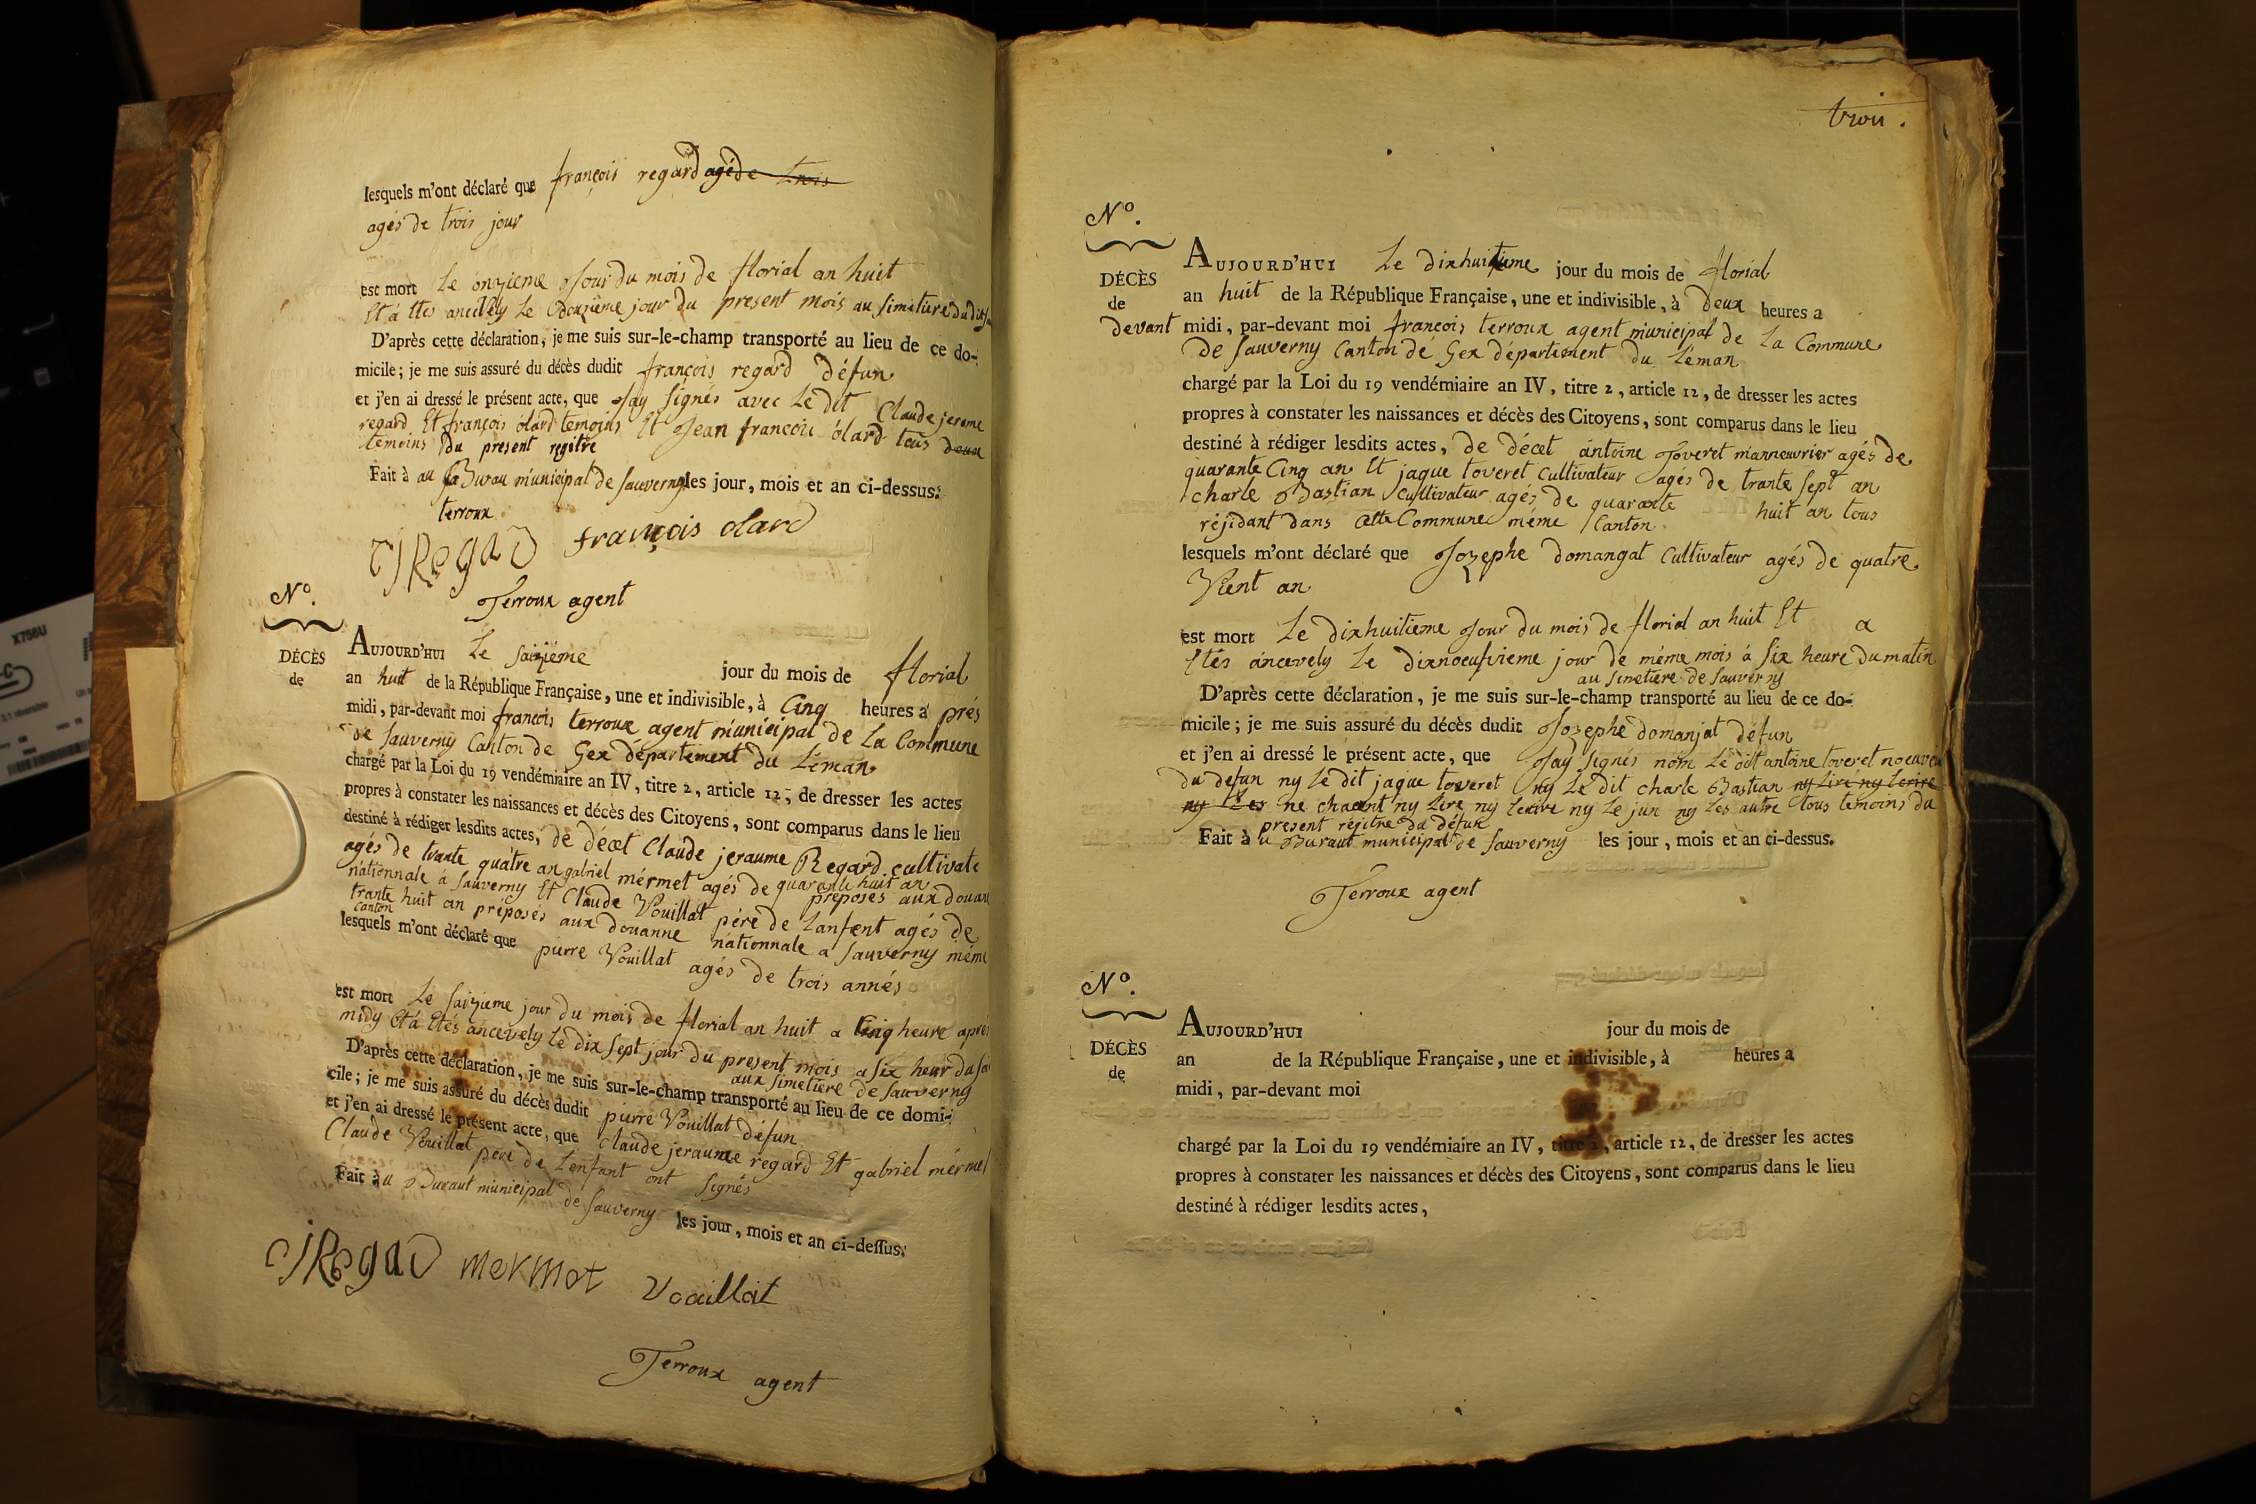 lesquels m'ont déclaré que françois regard agéde trois
agés de trois jour
est mort Le onzieme Jour du mois de florial an huit
Et á Etes ancevely Le Douzième jour du present mois au simetiere du dit
D'après cette déclaration, je me suis sur-le-champ transporté au lieu de ce do-
micile; je me suis assuré du décès dudit françois regard défun
et j'en ai dressé le présent acte, que Jay signés avec Le dit Claude jereme
regard Et françois olard temoins Et Jean francoii olard tous deux
temoins du present regitre
Fait à au Burau municipal de sauverny les jour, mois et an ci-dessus.
terroux
CJRegaD françois olard
Terroux agent
N.º
DÉCÈS
de
AUJOURD'HUI Le saizième jour du mois de florial
an huit de la République Française, une et indivisible, à Cinq heures a prés
midi, par-devant moi francois terroux agent municipal de La Commune
de sauverny Canton de Gex département du Léman
chargé par la Loi du 19 vendémiaire an IV, titre 2, article 12, de dresser les actes
propres à constater les naissances et décès des Citoyens, sont comparus dans le lieu
destiné à rédiger lesdits actes, de décet Claude jeraume Regard cultivate
agés de trante quàtre an gabriel mérmet agés de quarante huit an
préposés aux douan
nationnale á sauverny Et Claude Vouillat pére de Lanfent agés de
trante huit an préposés aux douanne nàtionnale a sauverny méme
canton
lesquels m'ont déclaré que pierre Vouillat agés de trois annés
est mort Le saizieme jour du mois de florial an huit a Cinq heure aprés
midy Et á Etés ancevely Le dix sept jour du present mois a six heur du soi
aux simetiere de sauverny
D'après cette déclaration, je me suis sur-le-champ transporté au lieu de ce domi-
cile; je me suis assuré du décès dudit pierre Vouillat défun
et j'en ai dressé le présent acte, que Claude jeraume regard Et gabriel mérmet
Claude Vouillat pére de Lenfant ont signés
Fait à u Buraut municipal de sauverny les jour, mois et an ci-dessus.
CJRegaD mermet Vouillat
Terroux agent
troii.
N.º
DÉCÈS
de
AUJOURD'HUI Le dixhuitieme jour du mois de florial
an huit de la République Française, une et indivisible, à Deux heures a
devant midi, par-devant moi françois terroux agent municipal de La Commune
de sauverny Canton dé Gex département du Léman
chargé par la Loi du 19 vendémiaire an IV, titre 2, article 12, de dresser les actes
propres à constater les naissances et décès des Citoyens, sont comparus dans le lieu
destiné à rédiger lesdits actes, de décet antoine Toveret manneuvrier agés de
quarante Cinq an Et jaque toveret Cultivateur agés de trante sept an
charle Bastian Cultivateur agés de quarante huit an tous
réjidant dans Cette Commune méme Canton
lesquels m'ont déclaré que Jozephe domangat Cultivateur agés de quatre
Vient an
est mort Le dixhuitieme Jour du mois de florial an huit Et a
Etés áncevely Le dixnoeufvieme jour de méme mois á six heure du matin
au simetiere de sauverny
D'après cette déclaration, je me suis sur-le-champ transporté au lieu de ce do-
micile; je me suis assuré du décès dudit Jozephe domanjat défun
et j'en ai dressé le présent acte, que Jay signés nom Le dit antoine toveret noeuveu
du defun ny Le dit jaque toveret ny Le dit charle Bastian ny Lire ny Lerire
ne chaent ny Lire ny Lerire ny Le jun ny Les autre tous temoins du
present réjitre du défun
Fait à u Buraut municipal de sauverny les jour, mois et an ci-dessus.
Terroux agent
N.º
DÉCÈS
de
AUJOURD'HUI jour du mois de
an de la République Française, une et indivisible, à heures a
midi, par-devant moi
chargé par la Loi du 19 vendémiaire an IV, titre 2, article 12, de dresser les actes
propres à constater les naissances et décès des Citoyens, sont comparus dans le lieu
destiné à rédiger lesdits actes,
X756U